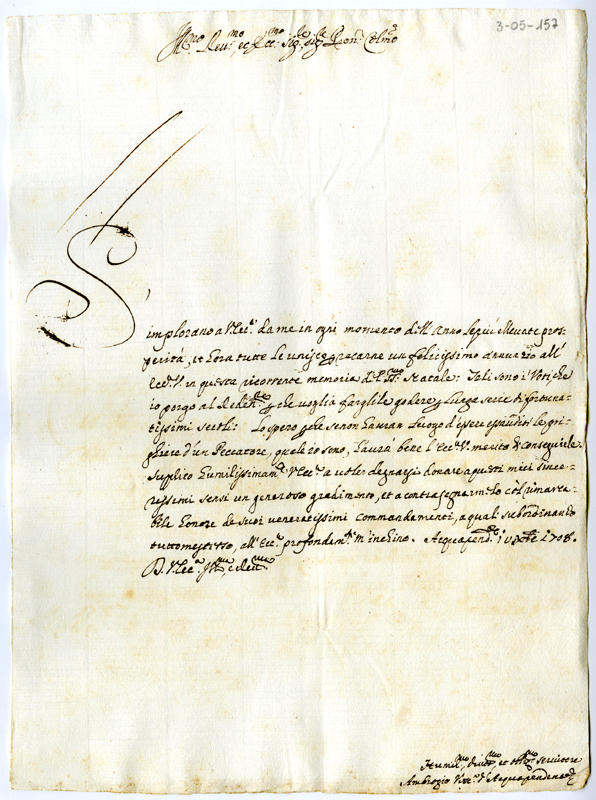 3-05-157
Ill.mo Rev.mo et Ecc.mo Sig.re Sig.r Pron. Colmo
S'implorano a V. Ecc.a da me in ogni momento dell'Anno le più elevate pros=
perità, et hora tutte le unisco per recarne un felicissimo annuntio all'
Ecc.a V. in questa ricorrente memoria del SS.mo Natale: Tali sono i Voti che
io porgo al Redent.re perche voglia fargliele godere per lunga serie di fortuna=
tissimi secoli: Lo spero perche se non havran luogo d'essere essaudite le pre=
ghiere d'un Peccatore, quale io sono, l'havrà bene l'Ecc.a V. merito di conseguirle.
Supplico humilissimam.te V. Ecc.a a voler degnarsi donare a questi miei since=
rissimi sensi un generoso gradimento, et a contrasegnarmelo col rimarca=
bile honore de suoi veneratissimi commandamenti, a quali subordinando
tutto me stesso, all'Ecc.a V. profondam.te m'inchino. Acquapend.te 1708.
D. V. Ecc.a Ill.ma e Rev.ma
Humil.mo divot.mo et obl.mo servitore
Ambrogio Vesc.o d'Acquapendente